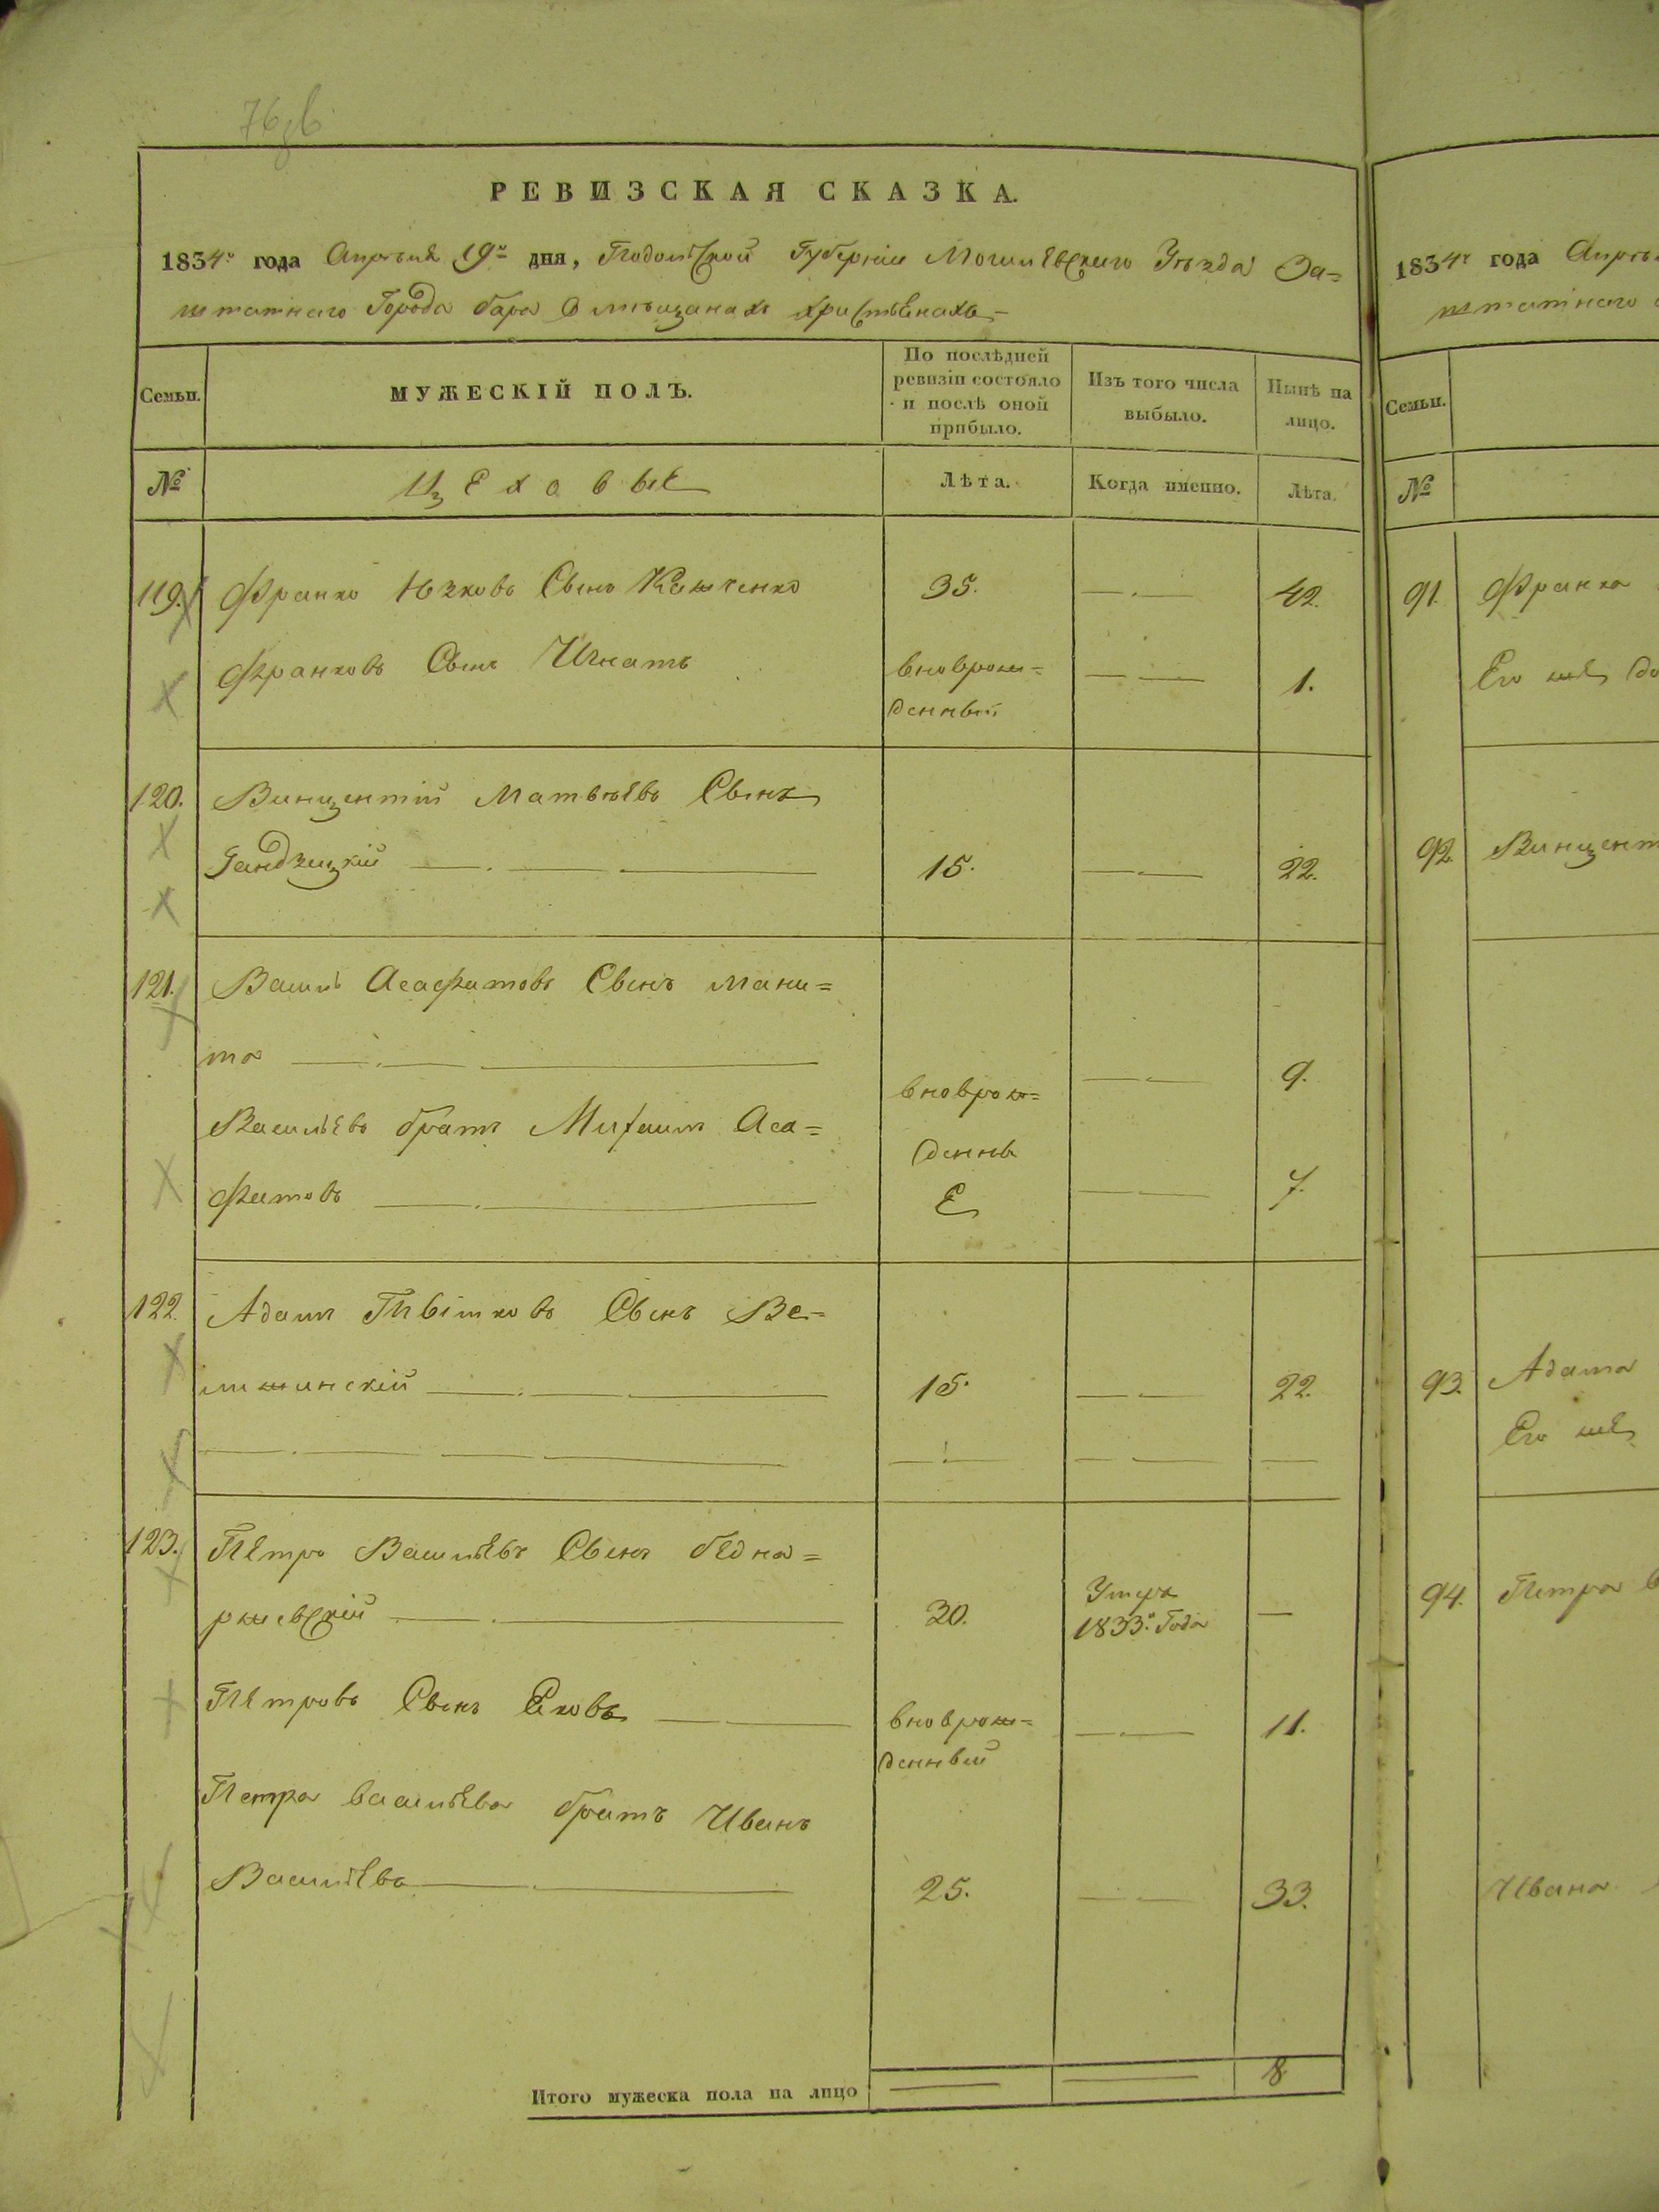 76об
РЕВИЗСКАЯ СКАЗКА.
1834го года Апрѣля 19го дня, Подольской Губерніи Могилевскаго Уѣзда За=
штатнаго Города Бара О мѣщанахъ христьянахъ
Семьи.
МУЖЕСКІЙ ПОЛЪ.
По послѣдней ревизіи состояло и послѣ оной прибыло.
Изъ того числа выбыло.
Нынѣ на лицо.
№
Цеховые
Лѣта.
Когда именно.
Лѣта.
119. Франко Юзковъ Сынъ 35. 42.
Франковъ Сынъ Игнатъ вноврож= 1.
денный
120. Винцентій Матвѣевъ Сынъ
Гандзицкій 15. 22.
121. Василь Асафатовъ Сынъ Мани=
та 9.
вноврож=
Васильевъ братъ Михаилъ Аса=
денны
фатовъ е 7.
122. Адам Сынъ Ве=
лижинскій 15. 22.
123. Петро Васильевъ Сынъ Бедна=
ржевскій 30. Умеръ
1833го Года
Петровъ Сынъ Яковъ вноврож= 11.
денный
Петра Васильева братъ Иванъ
Васильевъ 25. 33.
Итого мужеска пола на лицо 8
1834го года Апрѣ
штатнаго
Семьи.
№
91. Франка
Его же до
92. Винцент
93. Адама
Его же
94. Петра В
Ивана